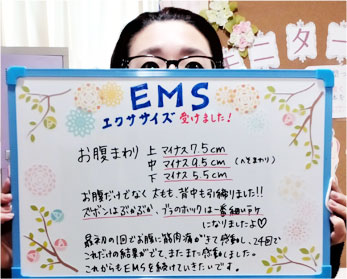 モニター
EMS
エクササイズ 受けました!
お腹まわり 上 マイナス7.5cm
中 マイナス9.5cm (へそまわり)
下 マイナス5.5cm
お腹だけでなく 太もも、背中も引締りました!!
ズボンはぶかぶか、ブラのホックは一番細いトケ
になりましたよ♡
最初の1回でお腹に筋肉痛がきて感動し、24回で
これだけの結果がでて、またまた感動しました。
これからもEMSを続けていきたいです。